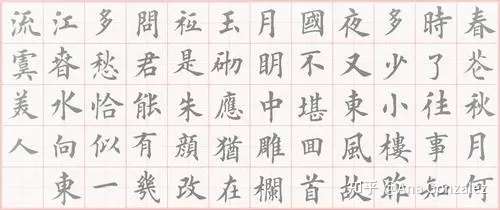 春花秋月何
時了往事知
多少小樓昨
夜又東風故
國不堪囬首
月眀中雕欄
玉砌應猶在
衹是朱顔改
問君能有幾
多愁恰似一
江春水向東
流虞美人
知乎 @Ana Gonzalez